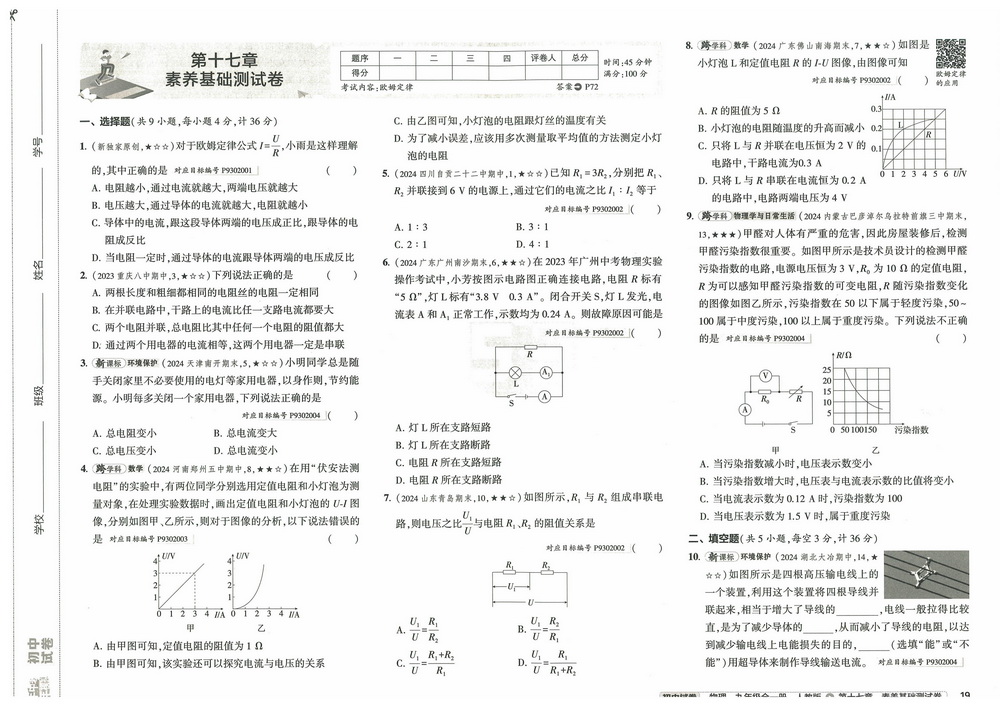 学校
班级
姓名
学号
初中
试卷
第十七章
素养基础测试卷
题序 一 二 三 四 评卷人 总分
得分
时间:45分钟
满分:100分
考试内容:欧姆定律
答案 P72
一、选择题(共9小题,每小题4分,计36分)
1. (新独家原创,★☆☆)对于欧姆定律公式I=U/R,小雨是这样理解
的,其中正确的是 对应目标编号 P9302001 ( )
A. 电阻越小,通过电流就越大,两端电压就越大
B. 电压越大,通过导体的电流就越大,电阻就越小
C. 导体中的电流,跟这段导体两端的电压成正比,跟导体的电
阻成反比
D. 当电阻一定时,通过导体的电流跟导体两端的电压成反比
2. (2023重庆八中期中,3,★☆☆)下列说法正确的是 ( )
A. 两根长度和粗细都相同的电阻丝的电阻一定相同
B. 在并联电路中,干路上的电流比任一支路电流都要大
C. 两个电阻并联,总电阻比其中任何一个电阻的阻值都大
D. 通过两个用电器的电流相等,这两个用电器一定是串联
3. 新课标 环境保护 (2024天津南开期末,5,★☆☆)小明同学总是随
手关闭家里不必要使用的电灯等家用电器,以身作则,节约能
源。小明每多关闭一个家用电器,下列说法正确的是
对应目标编号 P9302004 ( )
A. 总电阻变小 B. 总电流变大
C. 总电压变小 D. 总电流变小
4. 跨学科 数学 (2024河南郑州五中期中,8,★★☆)在用“伏安法测
电阻”的实验中,有两位同学分别选用定值电阻和小灯泡为测
量对象,在处理实验数据时,画出定值电阻和小灯泡的U-I图
像,分别如图甲、乙所示,则对于图像的分析,以下说法错误的
是 对应目标编号 P9302003 ( )
U/V 4 3 2 1 0 1 2 3 4 I/A
甲
U/V 4 3 2 1 0 1 2 3 4 I/A
乙
A. 由甲图可知,定值电阻的阻值为1 Ω
B. 由甲图可知,该实验还可以探究电流与电压的关系
C. 由乙图可知,小灯泡的电阻跟灯丝的温度有关
D. 为了减小误差,应该用多次测量取平均值的方法测定小灯
泡的电阻
5. (2024四川自贡二十二中期中,1,★☆☆)已知R₁=3R₂,分别把R₁、
R₂并联接到6 V的电源上,通过它们的电流之比I₁∶I₂等于
对应目标编号 P9302002 ( )
A. 1∶3 B. 3∶1
C. 2∶1 D. 4∶1
6. (2024广东广州南沙期末,6,★★☆)在2023年广州中考物理实验
操作考试中,小芳按图示电路图正确连接电路,电阻R标有
“5 Ω”,灯L标有“3.8 V 0.3 A”。闭合开关S,灯L发光,电
流表A和A₁正常工作,示数均为0.24 A。则故障原因可能是
对应目标编号 P9302002 ( )
R
L A₁
S A
A. 灯L所在支路短路
B. 灯L所在支路断路
C. 电阻R所在支路短路
D. 电阻R所在支路断路
7. (2024山东青岛期末,10,★★☆)如图所示,R₁与R₂组成串联电
路,则电压之比U₁/U与电阻R₁、R₂的阻值关系是
对应目标编号 P9302002 ( )
R₁ R₂
U₁
U
A. U₁/U=R₁/R₂ B. U₁/U=R₂/R₁
C. U₁/U=(R₁+R₂)/R₁ D. U₁/U=R₁/(R₁+R₂)
8. 跨学科 数学 (2024广东佛山南海期末,7,★★☆)如图是
小灯泡L和定值电阻R的I-U图像,由图像可知
对应目标编号 P9302002 ( )
欧姆定律
的应用
A. R的阻值为5 Ω
B. 小灯泡的电阻随温度的升高而减小
C. 只将L与R并联在电压恒为2 V的
电路中,干路电流为0.3 A
D. 只将L与R串联在电流恒为0.2 A
的电路中,电路两端电压为4 V
I/A 0.3 0.2 0.1 L R 0 1 2 3 4 5 6 U/V
9. 跨学科 物理学与日常生活 (2024内蒙古巴彦淖尔乌拉特前旗三中期末,
13,★★★)甲醛对人体有严重的危害,因此房屋装修后,检测
甲醛污染指数很重要。如图甲所示是技术员设计的检测甲醛
污染指数的电路,电源电压恒为3 V,R₀为10 Ω的定值电阻,
R为可以感知甲醛污染指数的可变电阻,R随污染指数变化
的图像如图乙所示,污染指数在50以下属于轻度污染,50~
100属于中度污染,100以上属于重度污染。下列说法不正确
的是 对应目标编号 P9302004 ( )
V R₀ R A S
甲
R/Ω 25 20 15 10 5 0 50 100 150 污染指数
乙
A. 当污染指数减小时,电压表示数变小
B. 当污染指数增大时,电压表与电流表示数的比值将变小
C. 当电流表示数为0.12 A时,污染指数为100
D. 当电压表示数为1.5 V时,属于重度污染
二、填空题(共5小题,每空3分,计36分)
10. 新课标 环境保护 (2024湖北大冶期中,14,★
☆☆)如图所示是四根高压输电线上的
一个装置,利用这个装置将四根导线并
联起来,相当于增大了导线的______,电线一般拉得比较
直,是为了减少导体的______,从而减小了导线的电阻,以达
到减少输电线上电能损失的目的,______(选填“能”或“不
能”)用超导体来制作导线输送电流。 对应目标编号 P9302004
初中试卷 物理 九年级全一册 人教版 第十七章 素养基础测试卷 19